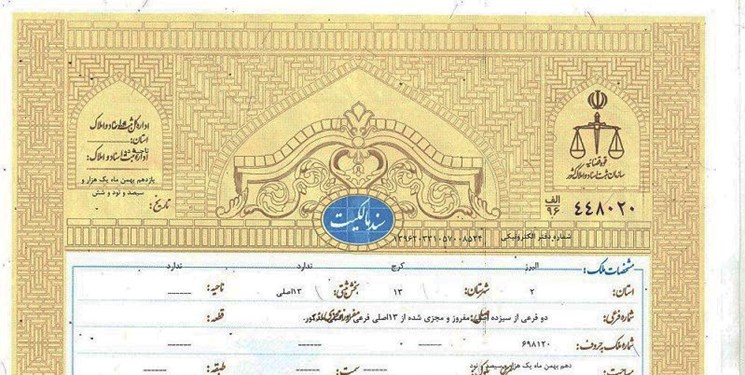 اداره کل ثبت اسناد و املاک
استان:
اداره ثبت اسناد و املاک:
یازدهم بهمن ماه یک هزار و
سیصد و نود و شش
تاریخ:
قوه قضائیه
سازمان ثبت اسناد و املاک کشور
الف
۹۶
۴۴۸۰۲۰
سند مالکیت
شماره دفتر الکترونیکی
مشخصات ملک:
البرز کرج ندارد ندارد
استان: ۲ شهرستان: ۱۳ بخش ثبتی: ۱۳اصلی ناحیه: ------
شماره فرعی: دو فرعی از سیزده اصلی مفروز و مجزی شده از ۱۳اصلی فرعی قطعه:
شماره ملک به حروف: ۶۹۸۱۲۰ ------ ------ ------
دهم بهمن ماه یک هزار و سیصد و نود
مساحت: سمت: طبقه: